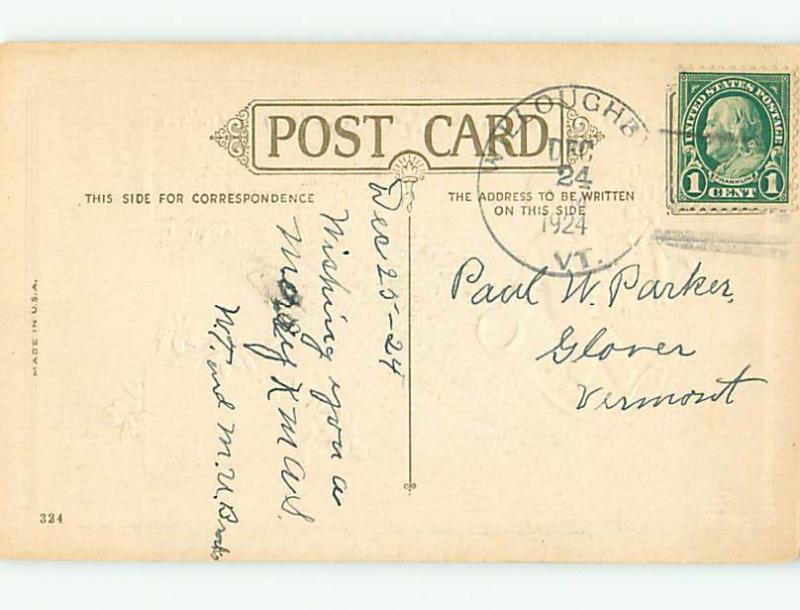 POST CARD
THIS SIDE FOR CORRESPONDENCE
THE ADDRESS TO BE WRITTEN
ON THIS SIDE
WILLOUGHBY
DEC
24
1924
VT.
UNITED STATES POSTAGE
FRANKLIN
1 CENT 1
Dec 25-24
Wishing you a
Merry Xmas.
W.T. and M.U. Brooks
Paul W. Parker,
Glover
Vermont
MADE IN U.S.A.
324